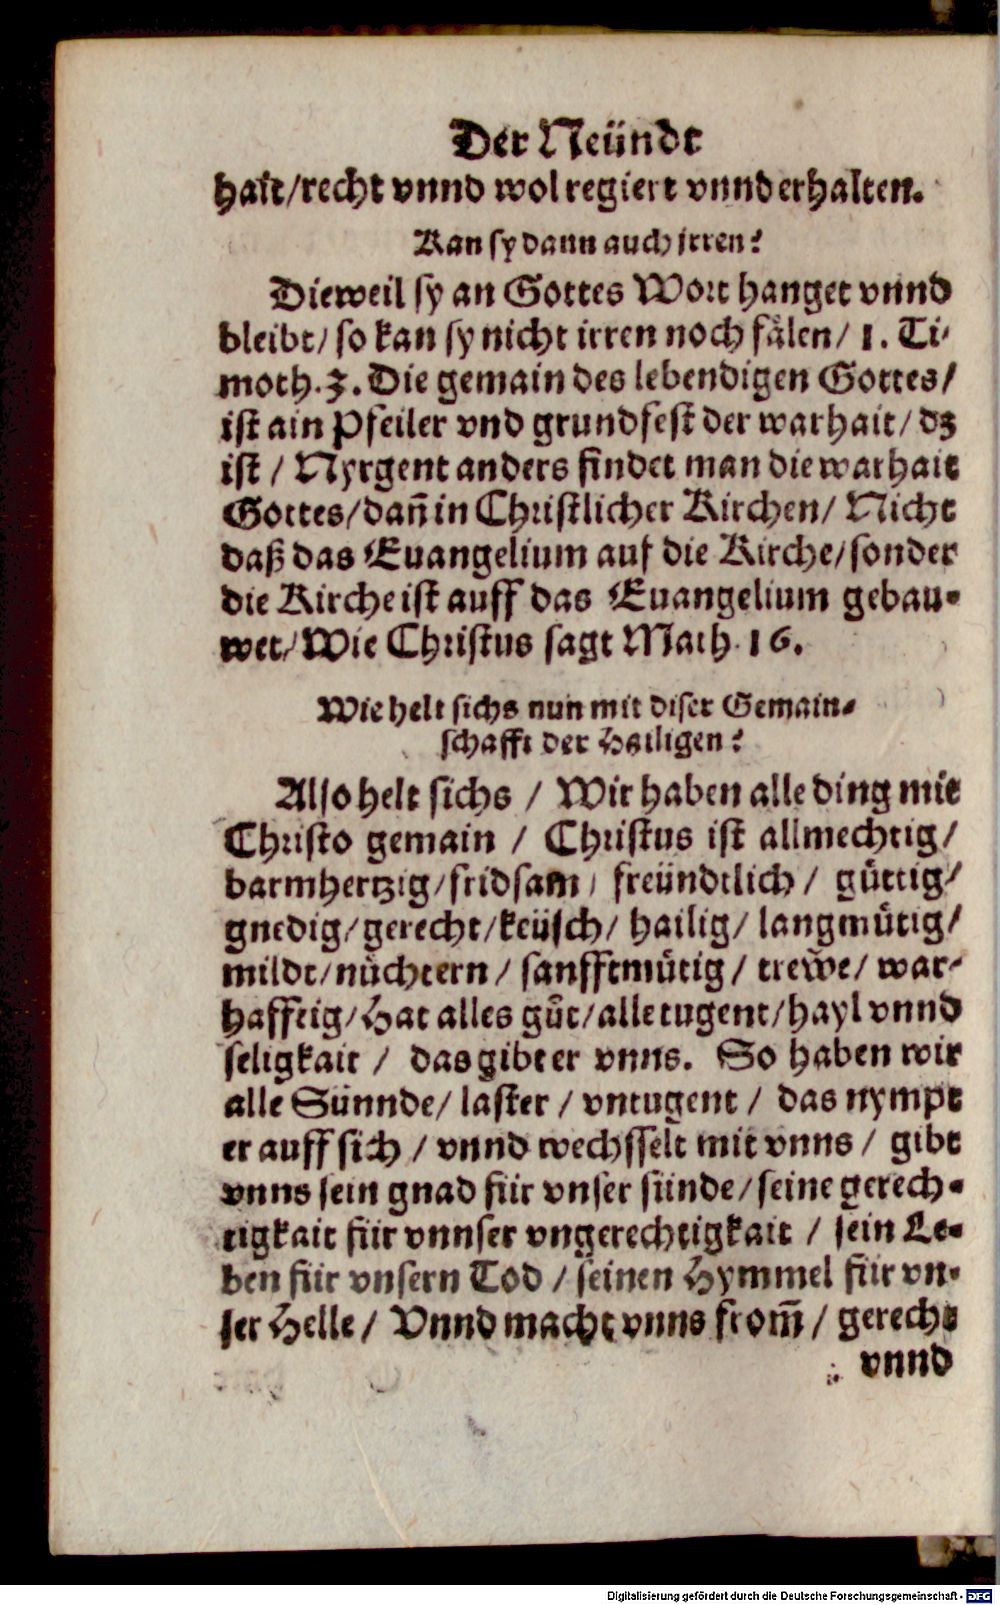 Der Neündt
hait/recht vnnd wol regiert vnnd erhalten.
Kan sy dann auch irren?
Dieweil sy an Gottes Wort hanget vnnd
bleibt/ so kan sy nicht irren noch fälen/ 1. Ti-
moth. 3. Die gemain des lebendigen Gottes/
ist ain Pfeiler vnd grundfest der warhait/ dz
ist / Nyrgent anders findet man die warhait
Gottes/dañ in Christlicher Kirchen/ Nicht
daß das Euangelium auf die Kirche/sonder
die Kirche ist auff das Euangelium gebau-
wet/Wie Christus sagt Math. 16.
Wie helt sichs nun mit diser Gemain-
schafft der Heiligen?
Also helt sichs / Wir haben alle ding mit
Christo gemain / Christus ist allmechtig/
barmhertzig/fridsam/ freündtlich/ gůttig/
gnedig/gerecht/keüsch/ hailig/ langmůtig/
mildt/nůchtern/ sanfftmůtig/ trewe/ war-
hafftig/Hat alles gůt/alle tugent/hayl vnnd
seligkait / das gibt er vnns. So haben wir
alle Sünnde/ laster / vntugent / das nympt
er auff sich / vnnd wechsselt mit vnns / gibt
vnns sein gnad für vnser sünde/seine gerech-
tigkait für vnnser vngerechtigkait / sein Le-
ben für vnsern Tod / seinen Hymmel für vn-
ser Helle / Vnnd macht vnns from̃ / gerecht
vnnd
Digitalisierung gefördert durch die Deutsche Forschungsgemeinschaft - DFG